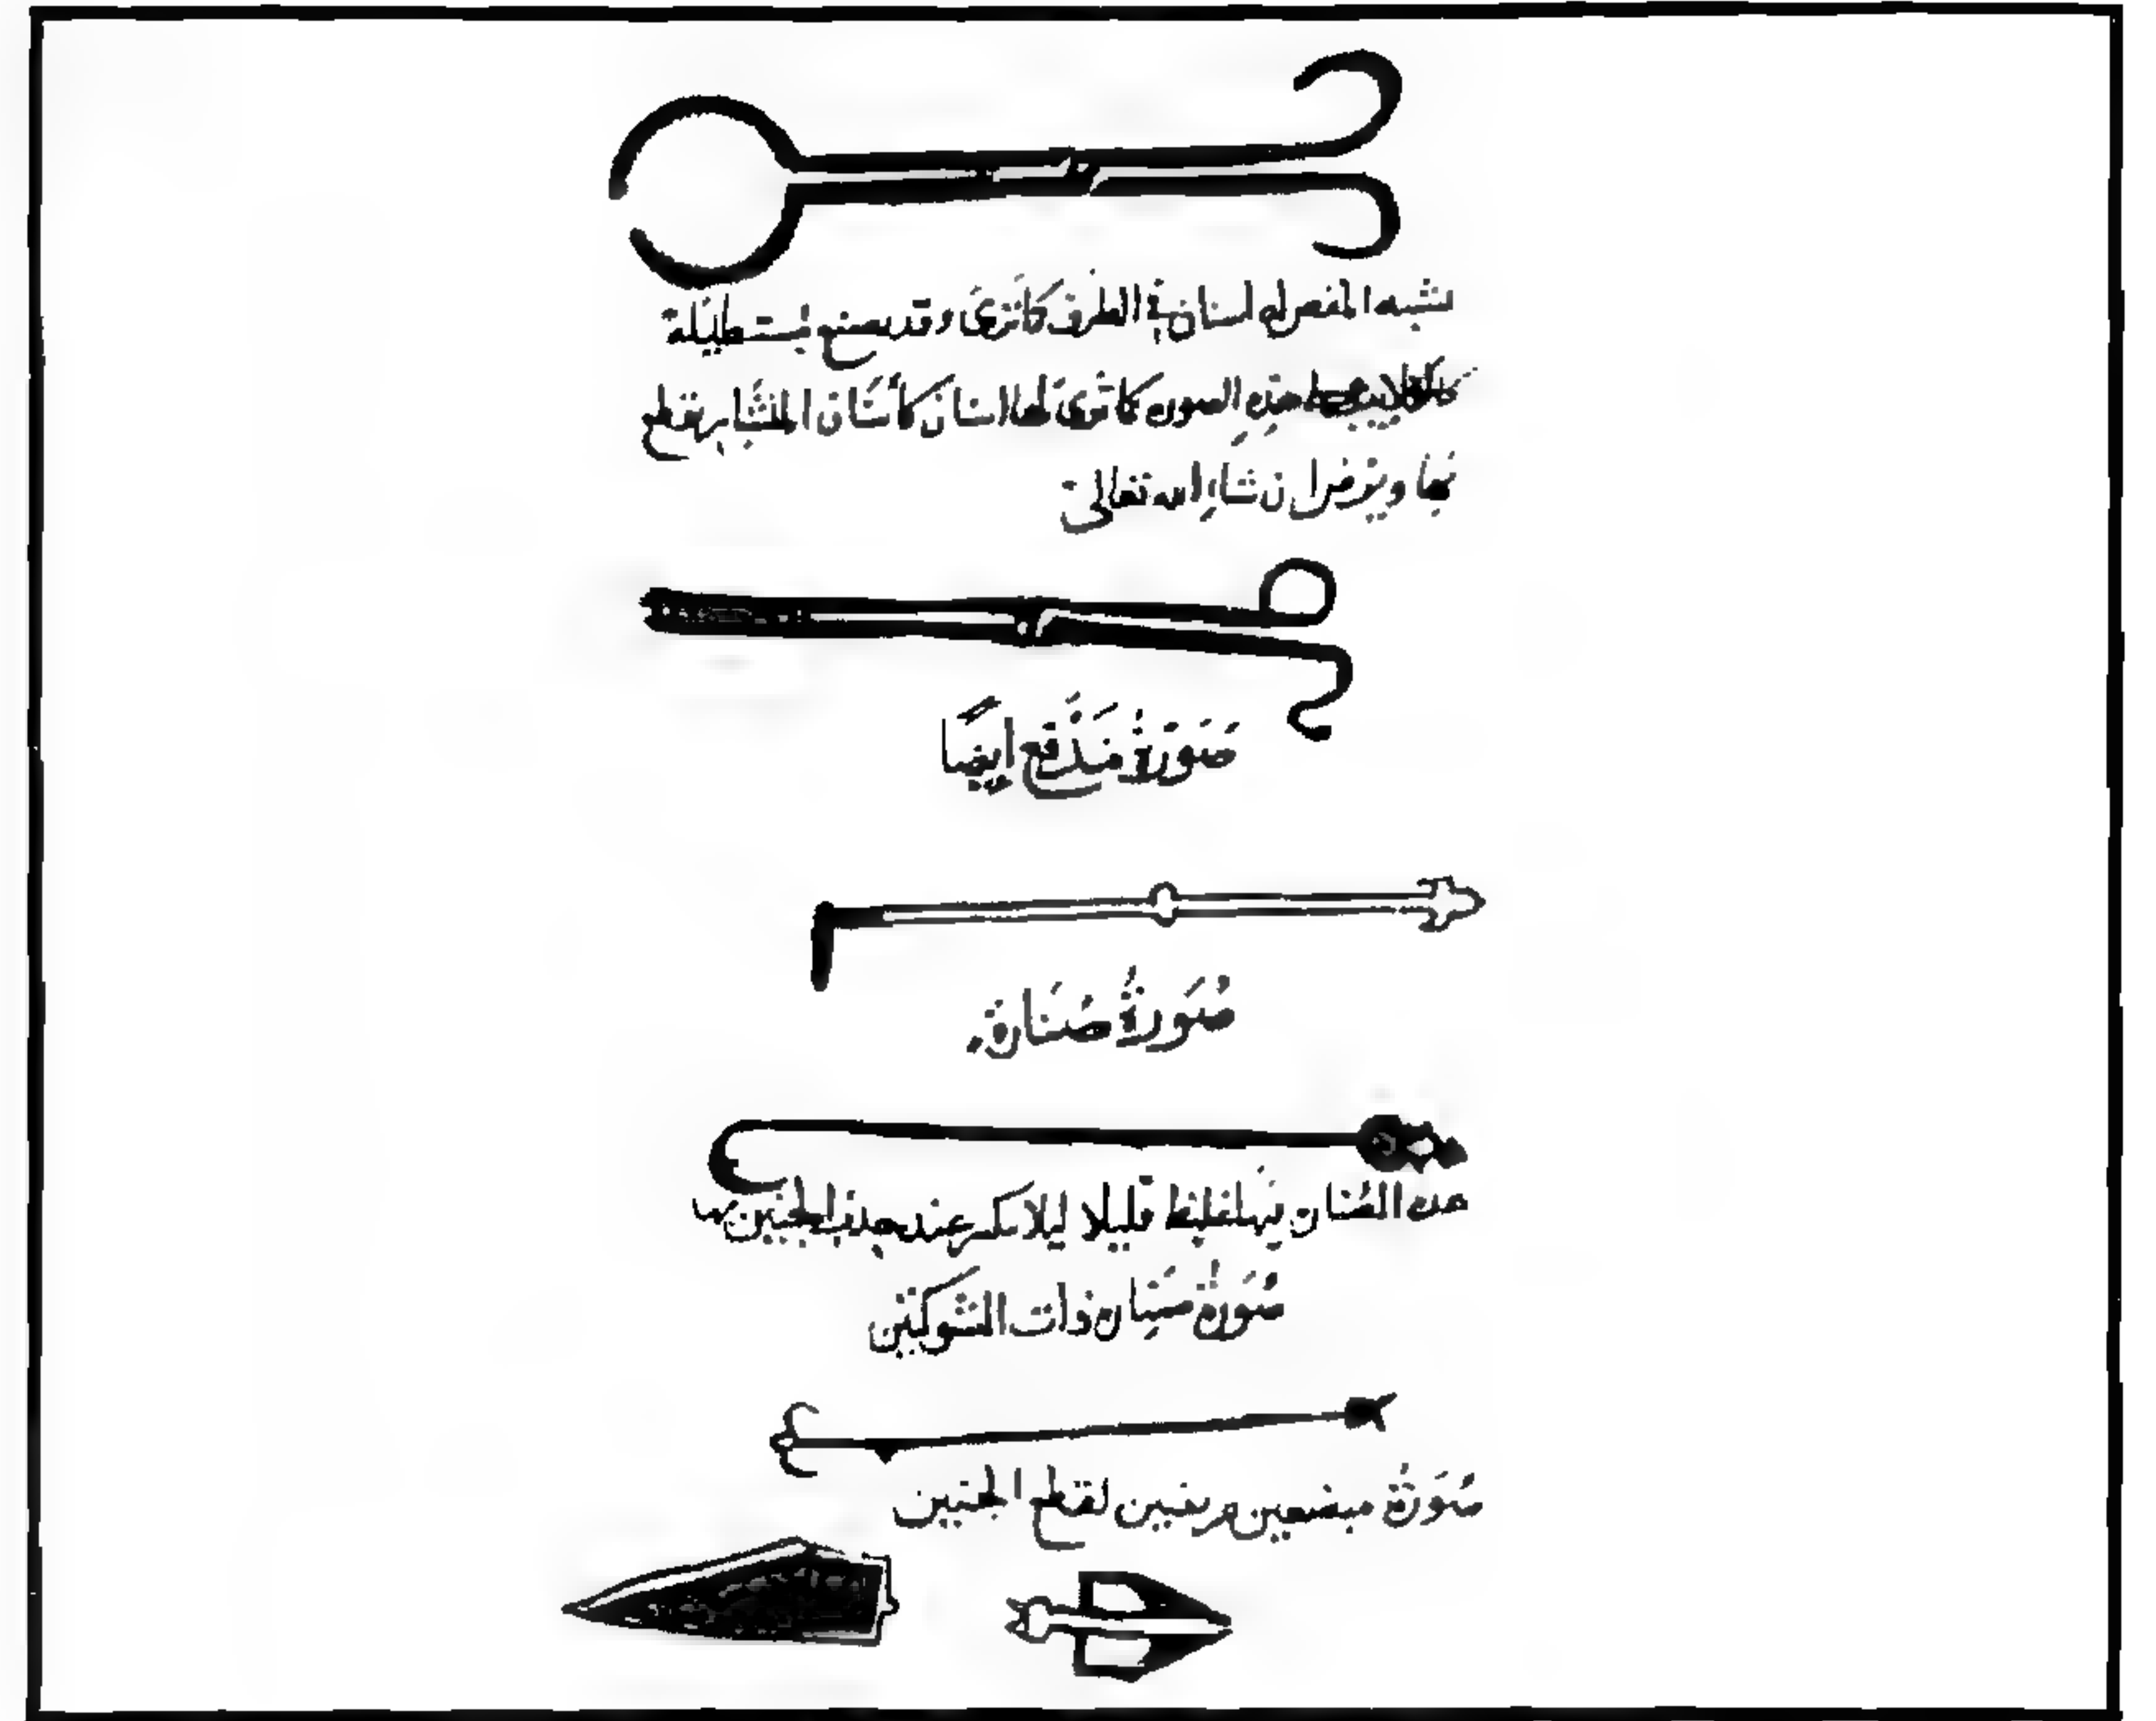 يشبه المقص له اسنان في الطرف كما ترى وقد يصنع مستطيلة
كالكلاليب على هذه الصورة كما ترى لها اسنان كأسنان المنشار يقطع
بها ويرض ان شاء الله تعالى
صورة مدفع ايضًا
صورة صنارة
هذه الصنارة فيها غلظ قليلا ليلا تنكسر عند جذب الجنين بها
صورة صنارة ذات الشوكتين
صورة مبضعين عريضين لقطع الجنين